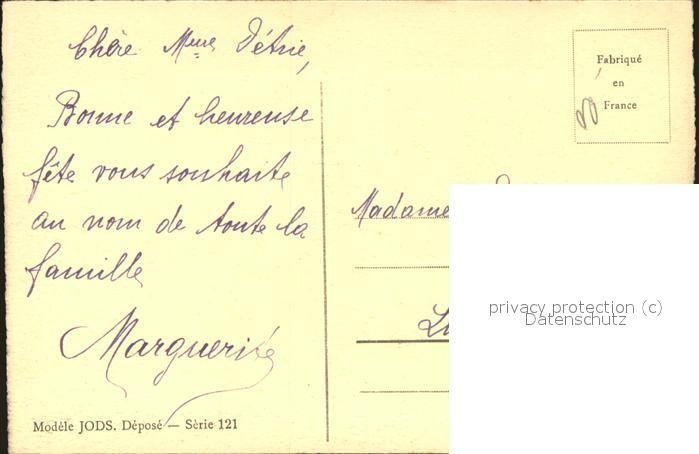 Chère Mme Détrie,
Bonne et heureuse
fête vous souhaite
au nom de toute la
famille
Marguerite
Modèle JODS. Déposé — Sèrie 121
Fabriqué
en
France
Madame
privacy protection (c)
Datenschutz